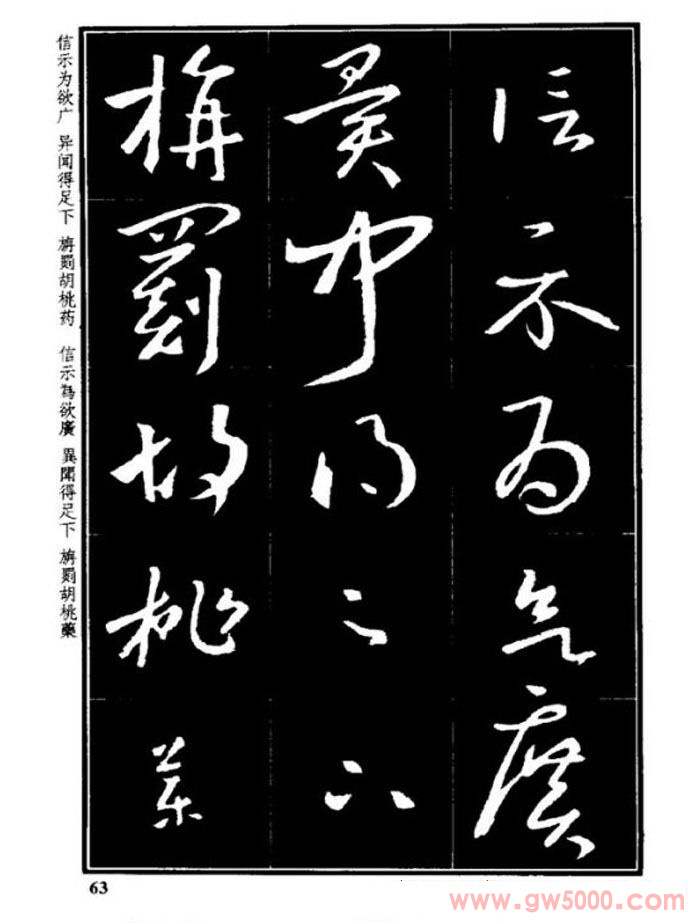 信示為欲廣
異聞得足下
旃罽胡桃藥
信示为欲广 异闻得足下 旃罽胡桃药 信示為欲廣 異聞得足下 旃罽胡桃藥
63
www.gw5000.com